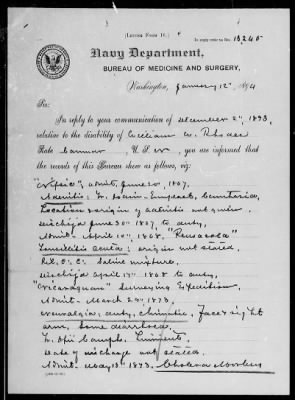 (LETTER FORM 10.)
In reply refer to No. 13245
Navy Department,
BUREAU OF MEDICINE AND SURGERY,
Washington, January 12th 1894
Sir:
In reply to your communication of December 2d, 1893,
relative to the disability of William W. Rhoder
Rate U.S.N., you are informed that
the records of this Bureau show as follows, viz:
admit, June 20th, 1867,
Adenitis:
Location & origin of adenitis not given.
Discharged June 30th 1867, to duty,
Admit. April 10th, 1868, "Pensacola"
Tonsilitis acuta: origin not stated
Saline mixture,
Discharged April 14th 1868 to duty,
"Nicaraguan" Surveying Expedition.
Admit. March 24th, 1873,
Neuralgia; duty, climatic, Face & right
arm, Some diarrhoea,
Tr. Opii Camph. Liniments.
Date of discharge not stated.
Admit. May 13th 1873, Cholera Morbus